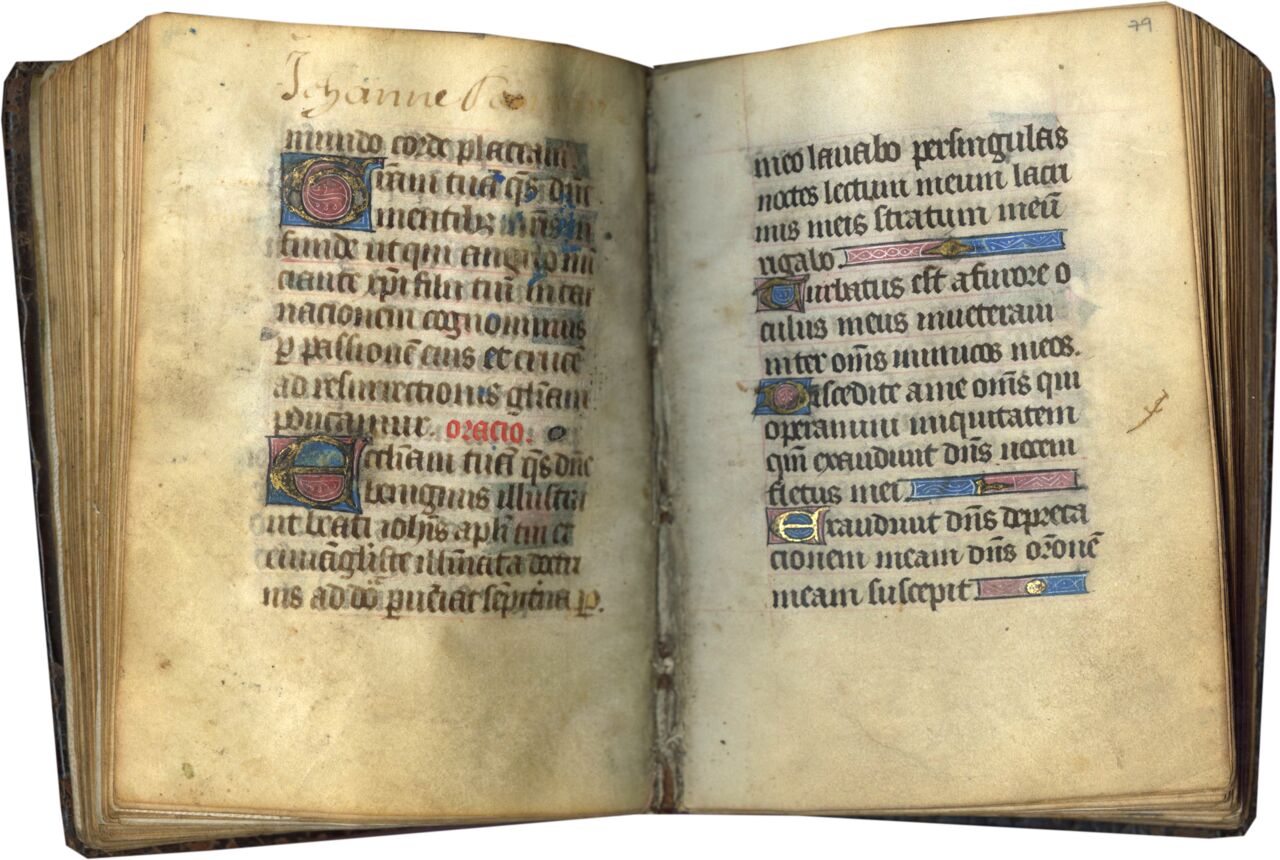 Johanne
mundo corde placeam
Gr̄am tuā q̄s dn̄e
mentibs nr̄is in
funde ut qui angelo nū
ciante xpi filii tui incar
nacionem cognouimus
p passionē eius et crucē
ad resurrectionis glīam
pducamur. oracio.
Eccliam tuā q̄s dn̄e
benignus illustra
ut beati ioh̄is apl̄i tui et
euuāgliste illuīata doctri
nis ad do p̄ueiat sepitūa p.
79
meo lauabo persingulas
noctes lectum meum lacri
mis meis stratum meū
rigabo.
Turbatus est a furore o
culus meus inueteraui
inter om̄s inimicos meos.
Discedite a me om̄s qui
operamini iniquitatem
qm̄ exaudiuit dn̄s uocem
fletus mei.
Exaudiuit dn̄s depreca
cionem meam dn̄s or̄onē
meam suscepit